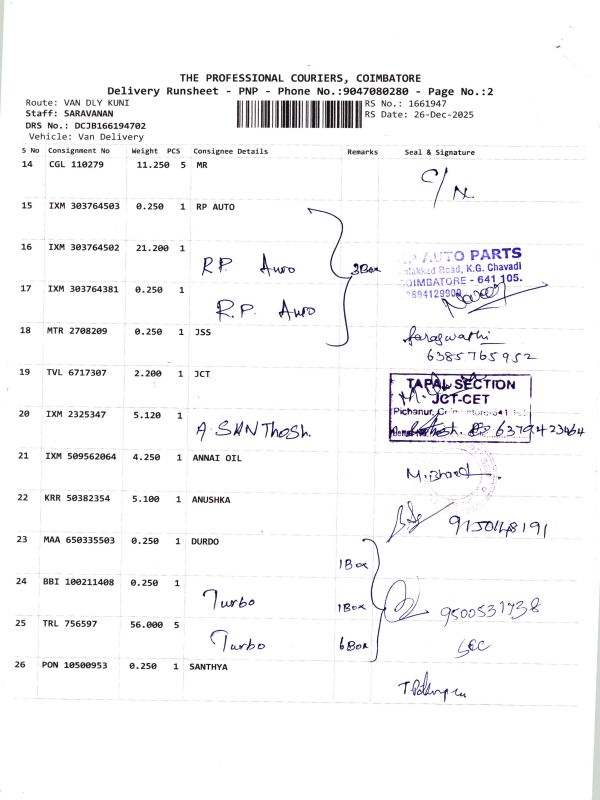 THE PROFESSIONAL COURIERS, COIMBATORE
Delivery Runsheet - PNP - Phone No.:9047080280 - Page No.:2
Route: VAN DLY KUNI
RS No.: 1661947
Staff: SARAVANAN
RS Date: 26-Dec-2025
DRS No.: DCJB166194702
Vehicle: Van Delivery
S No Consignment No Weight PCS Consignee Details Remarks Seal & Signature
14 CGL 110279 11.250 5 MR
C/N
15 IXM 303764503 0.250 1 RP AUTO
16 IXM 303764502 21.200 1
R.P. Auto 3Box
AUTO PARTS
Road, K.G. Chavadi
COIMBATORE - 641 105.
17 IXM 303764381 0.250 1
R.P. Auto
Naveen
18 MTR 2708209 0.250 1 JSS
Saraswathi
6385765952
19 TVL 6717307 2.200 1 JCT
TAPAL SECTION
JCT-CET
Pichanur,
20 IXM 2325347 5.120 1
A SANThosh.
6379423464
21 IXM 509562064 4.250 1 ANNAI OIL
M. Bharat
22 KRR 50382354 5.100 1 ANUSHKA
9150148191
23 MAA 650335503 0.250 1 DURDO
1Box
24 BBI 100211408 0.250 1
Turbo 1Box
9500531738
25 TRL 756597 56.000 5
Turbo 6Box
Sec
26 PON 10500953 0.250 1 SANTHYA